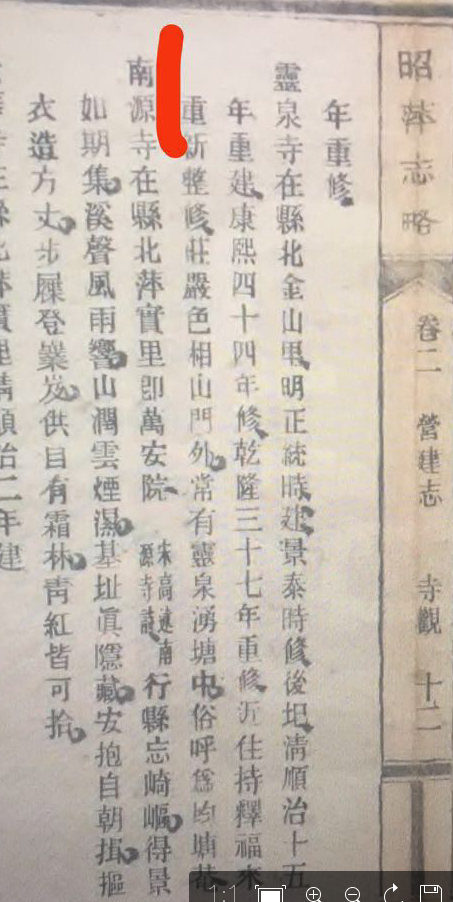 昭萍志略 卷二 營建志 寺觀 十二
年重修
靈泉寺在縣北金山里明正統時建景泰時修後圮淸順治十五
年重建康熙四十四年修乾隆三十七年重修近住持釋福來
重新整修莊嚴色相山門外常有靈泉湧塘中俗呼爲均塘
南源寺在縣北萍實里卽萬安院 宋高南源寺詩 行縣忘崎嶇得景
如期集溪聲風雨響山潤雲煙濕基址眞隱藏安抱自朝揖摳
衣造方丈步屧登嶪岌供目有霜林靑紅皆可拾
順治二年建